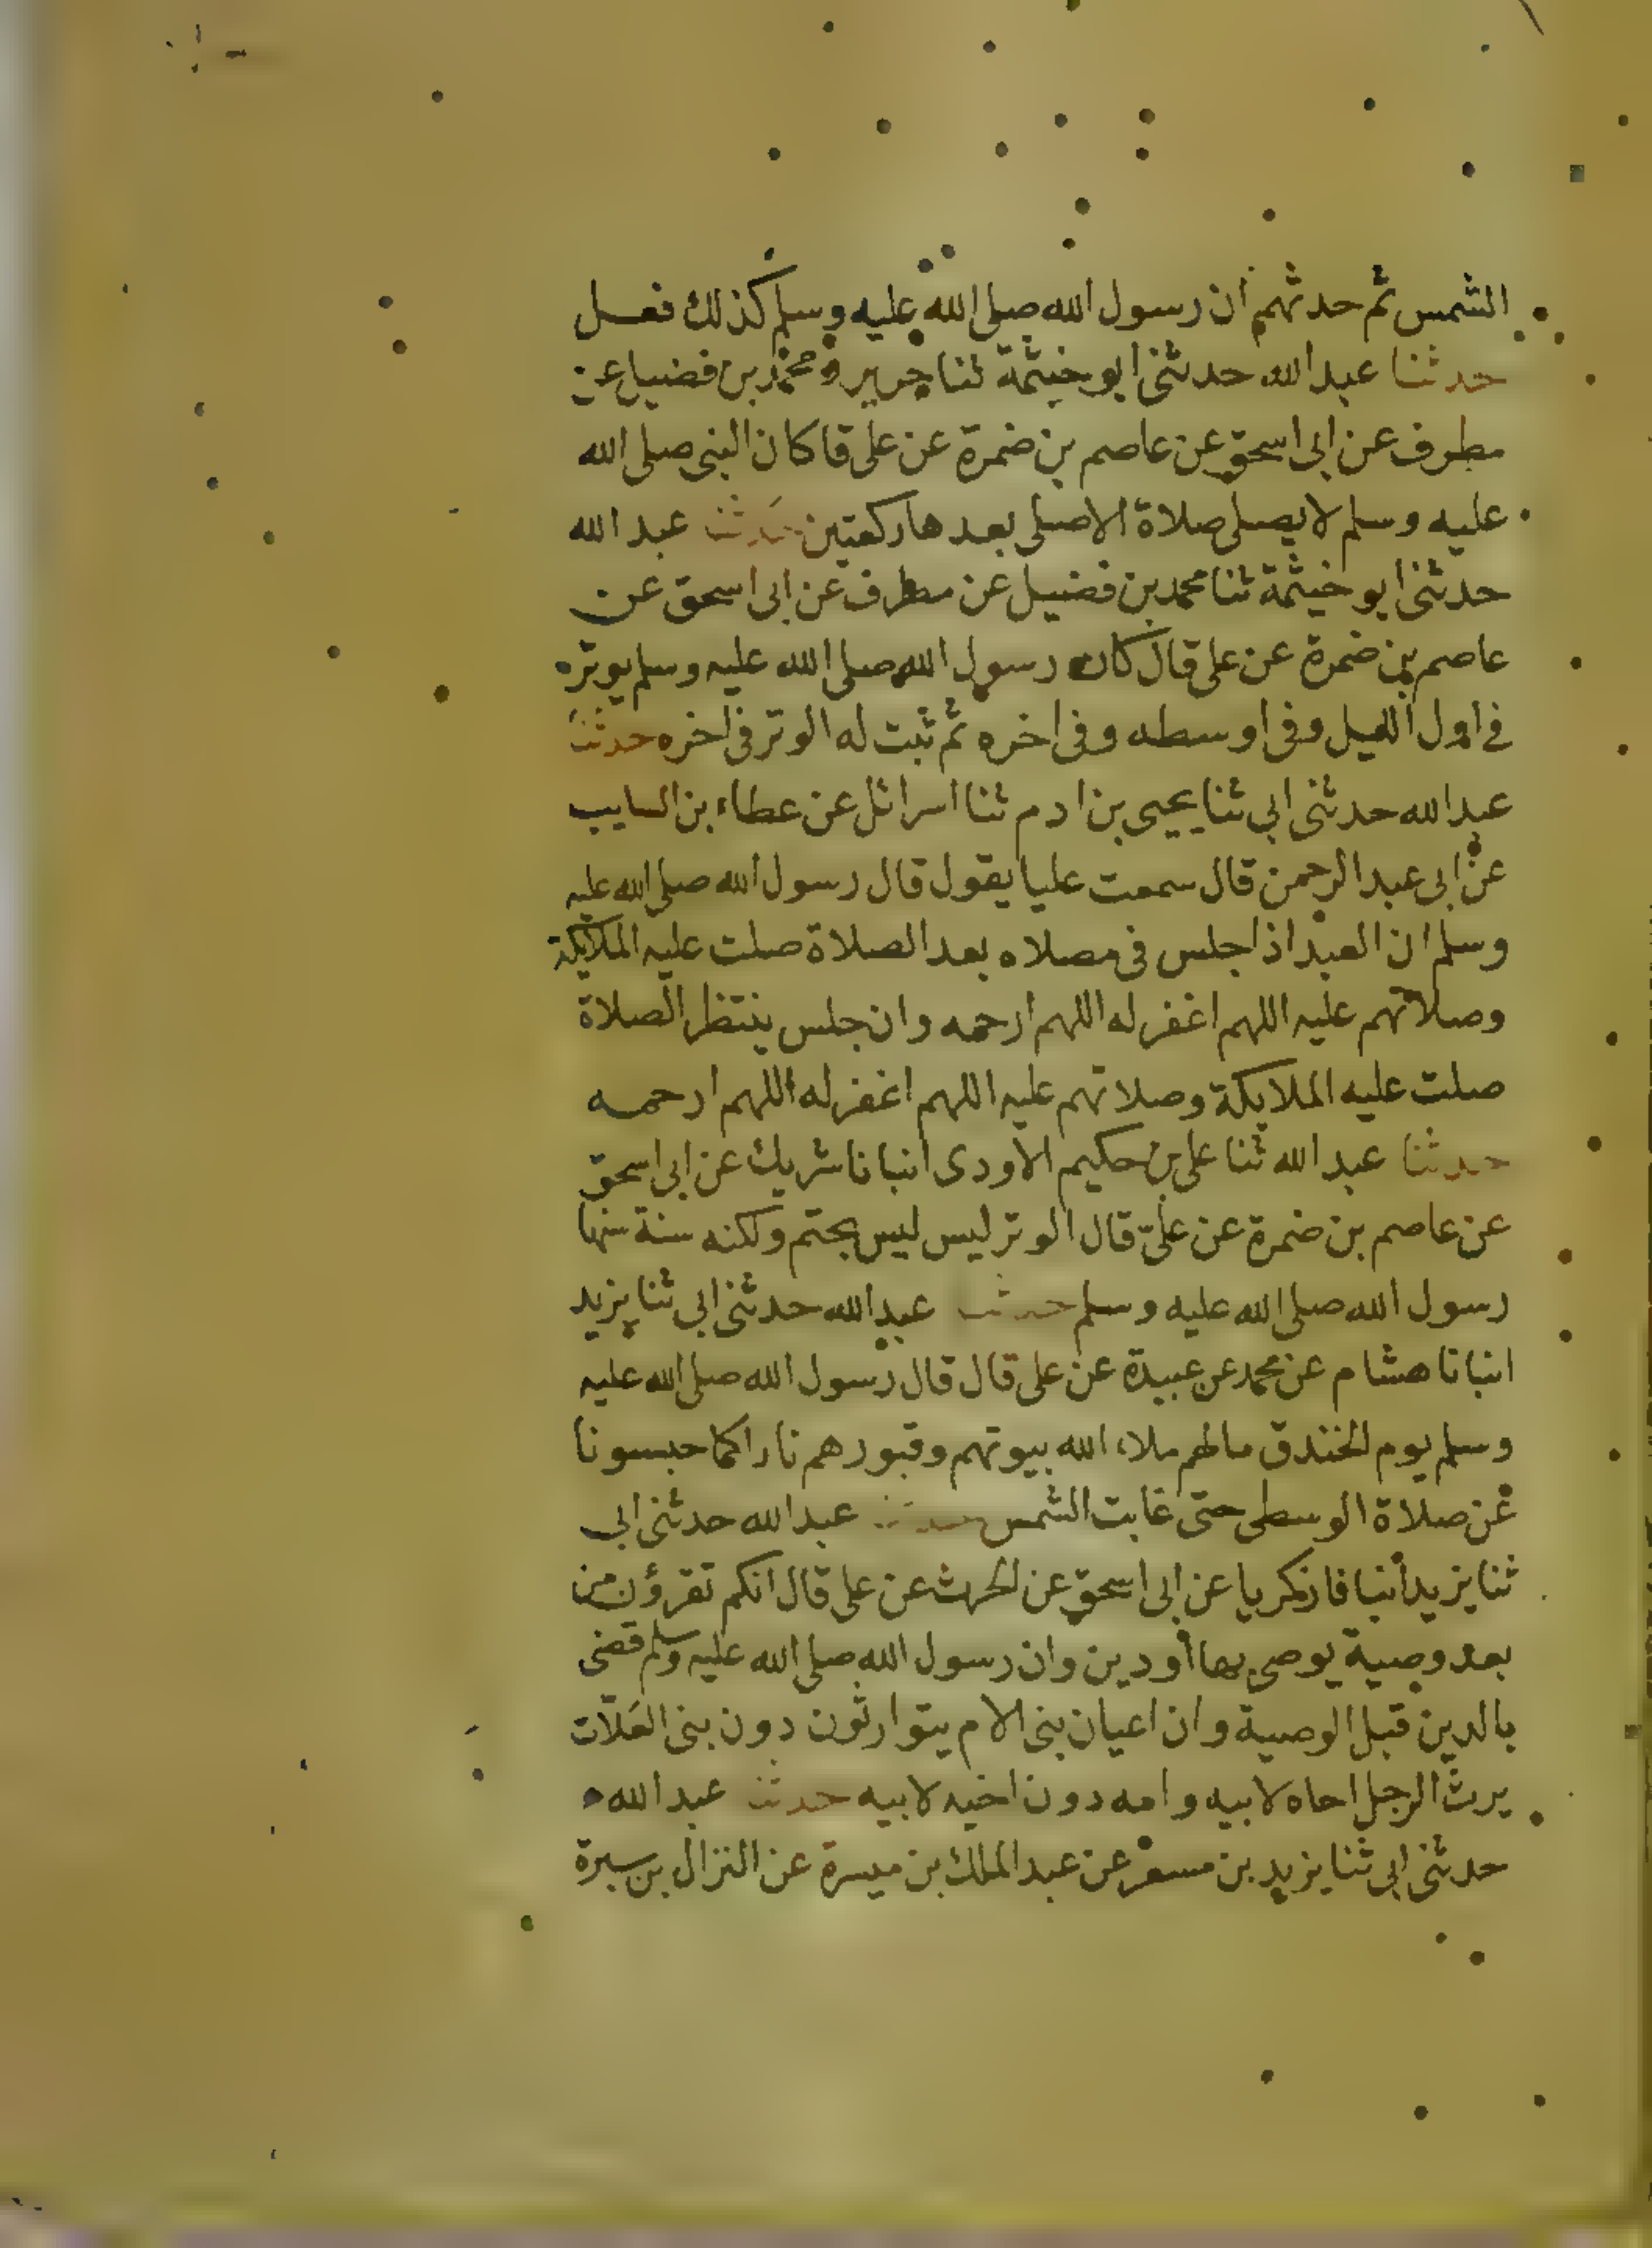 الشمس ثم حدثهم ان رسول الله صلى الله عليه وسلم كذلك فعل
حدثنا عبد الله حدثني ابو خيثمة ثنا جرير ومحمد بن فضيل عن
مطرف عن ابي اسحق عن عاصم بن ضمرة عن على قا كان النبي صلى الله
عليه وسلم لا يصلى صلاة الا صلى بعدها ركعتين حدثنا عبد الله
حدثني ابو خيثمة ثنا محمد بن فضيل عن مطرف عن ابي اسحق عن
عاصم بن ضمرة عن على قال كان رسول الله صلى الله عليه وسلم يوتر
في اول الليل وفى اوسطه وفى اخره ثم ثبت له الوتر في اخره حدثنا
عبد الله حدثني ابي ثنا يحيى بن ادم ثنا اسرائل عن عطاء بن السايب
عن ابي عبد الرحمن قال سمعت عليا يقول قال رسول الله صلى الله عليه
وسلم ان العبد اذا جلس فى مصلاه بعد الصلاة صلت عليه الملايكة
وصلاتهم عليه اللهم اغفر له اللهم ارحمه وان جلس ينتظر الصلاة
صلت عليه الملايكة وصلاتهم عليه اللهم اغفر له اللهم ارحمه
حدثنا عبد الله ثنا على بن حكيم الاودى انبانا شريك عن ابي اسحق
عن عاصم بن ضمرة عن علىّ قال الوتر ليس ليس بحتم ولكنه سنة سنها
رسول الله صلى الله عليه وسلم حدثنا عبد الله حدثني ابي ثنا يزيد
انبانا هشام عن محمد عن عبيدة عن على قال قال رسول الله صلى الله عليه
وسلم يوم الخندق مالهم ملاء الله بيوتهم وقبورهم نارا كما حبسونا
عن صلاة الوسطى حتى غابت الشمس حدثنا عبد الله حدثني ابي
ثنا يزيد أنبانا زكريا عن ابي اسحق عن الحرث عن على قال انكم تقرؤن من
بعد وصية يوصى بها أو دين وان رسول الله صلى الله عليه وسلم قضى
بالدين قبل الوصية وان اعيان بني الام يتوارثون دون بني العَلات
يرث الرجل اخاه لابيه وامه دون اخيه لابيه حدثنا عبد الله
حدثني ابي ثنا يزيد بن مسعر عن عبد الملك بن ميسرة عن النزال بن سبرة